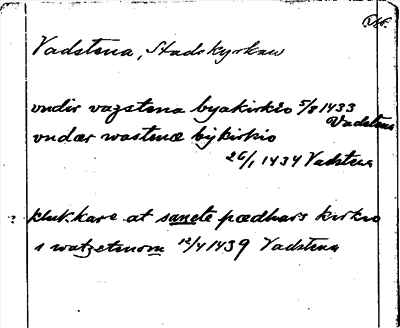 Vadstena, Stadskyrkan
undir vazstena byakirkio 5/8 1433
Vadstena
undær wastenæ bykirkio
26/1 1434 Vadstena
klukkare at sancte pædhars kirkio
i watzstenom 12/4 1439 Vadstena